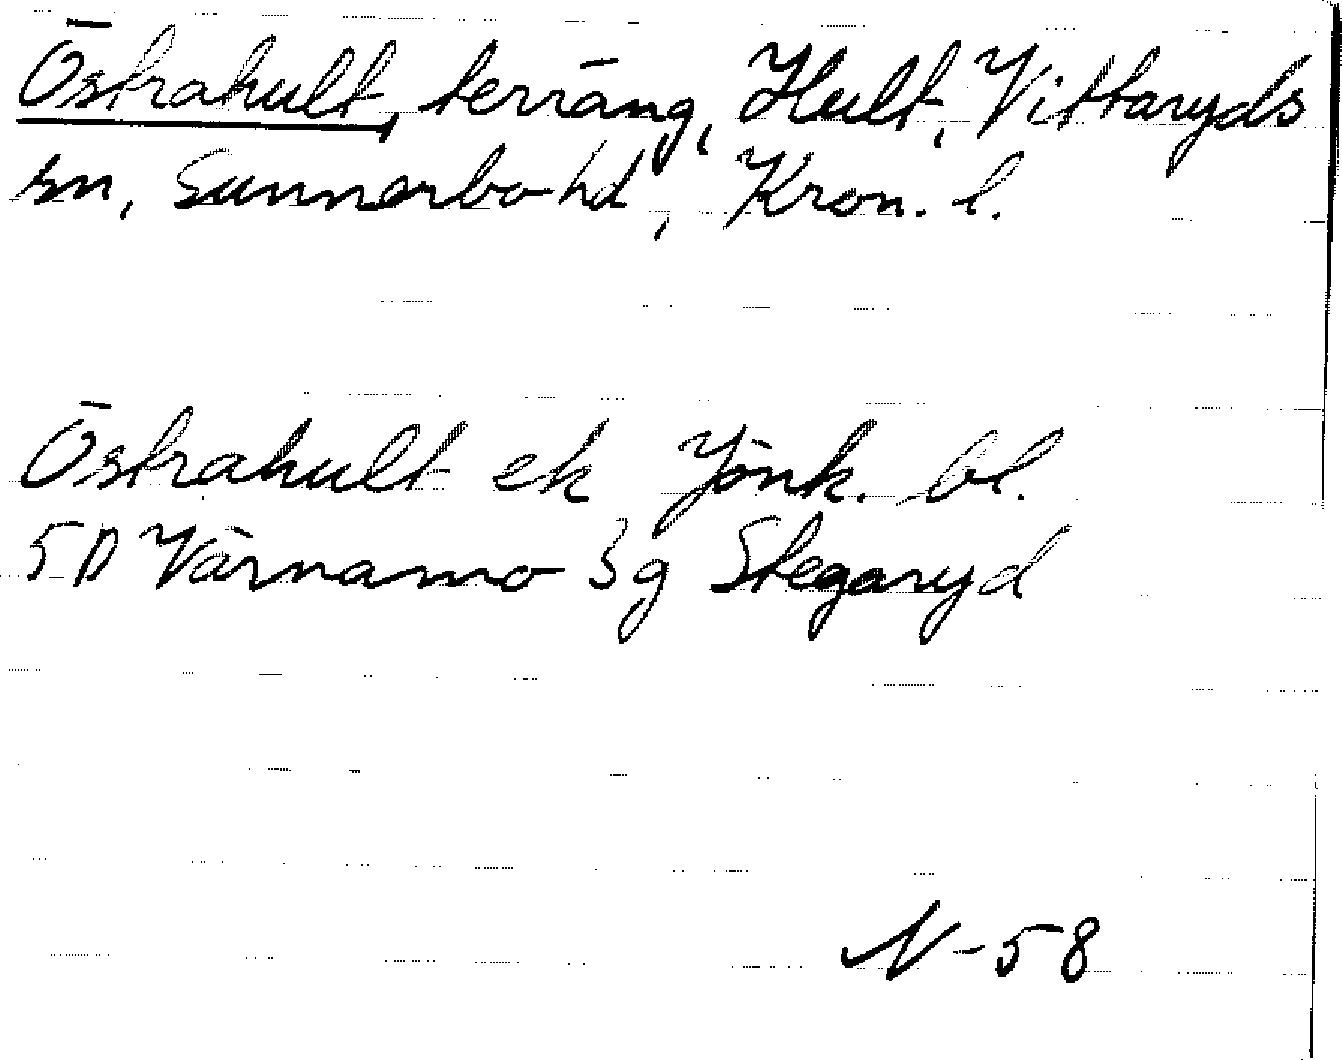 Östrahult, terräng, Hult, Vittaryds
sn, Sunnerbo hd, Kron. l.
Östrahult ek Jönk. bl.
5D Värnamo 3g Stegaryd
N-58